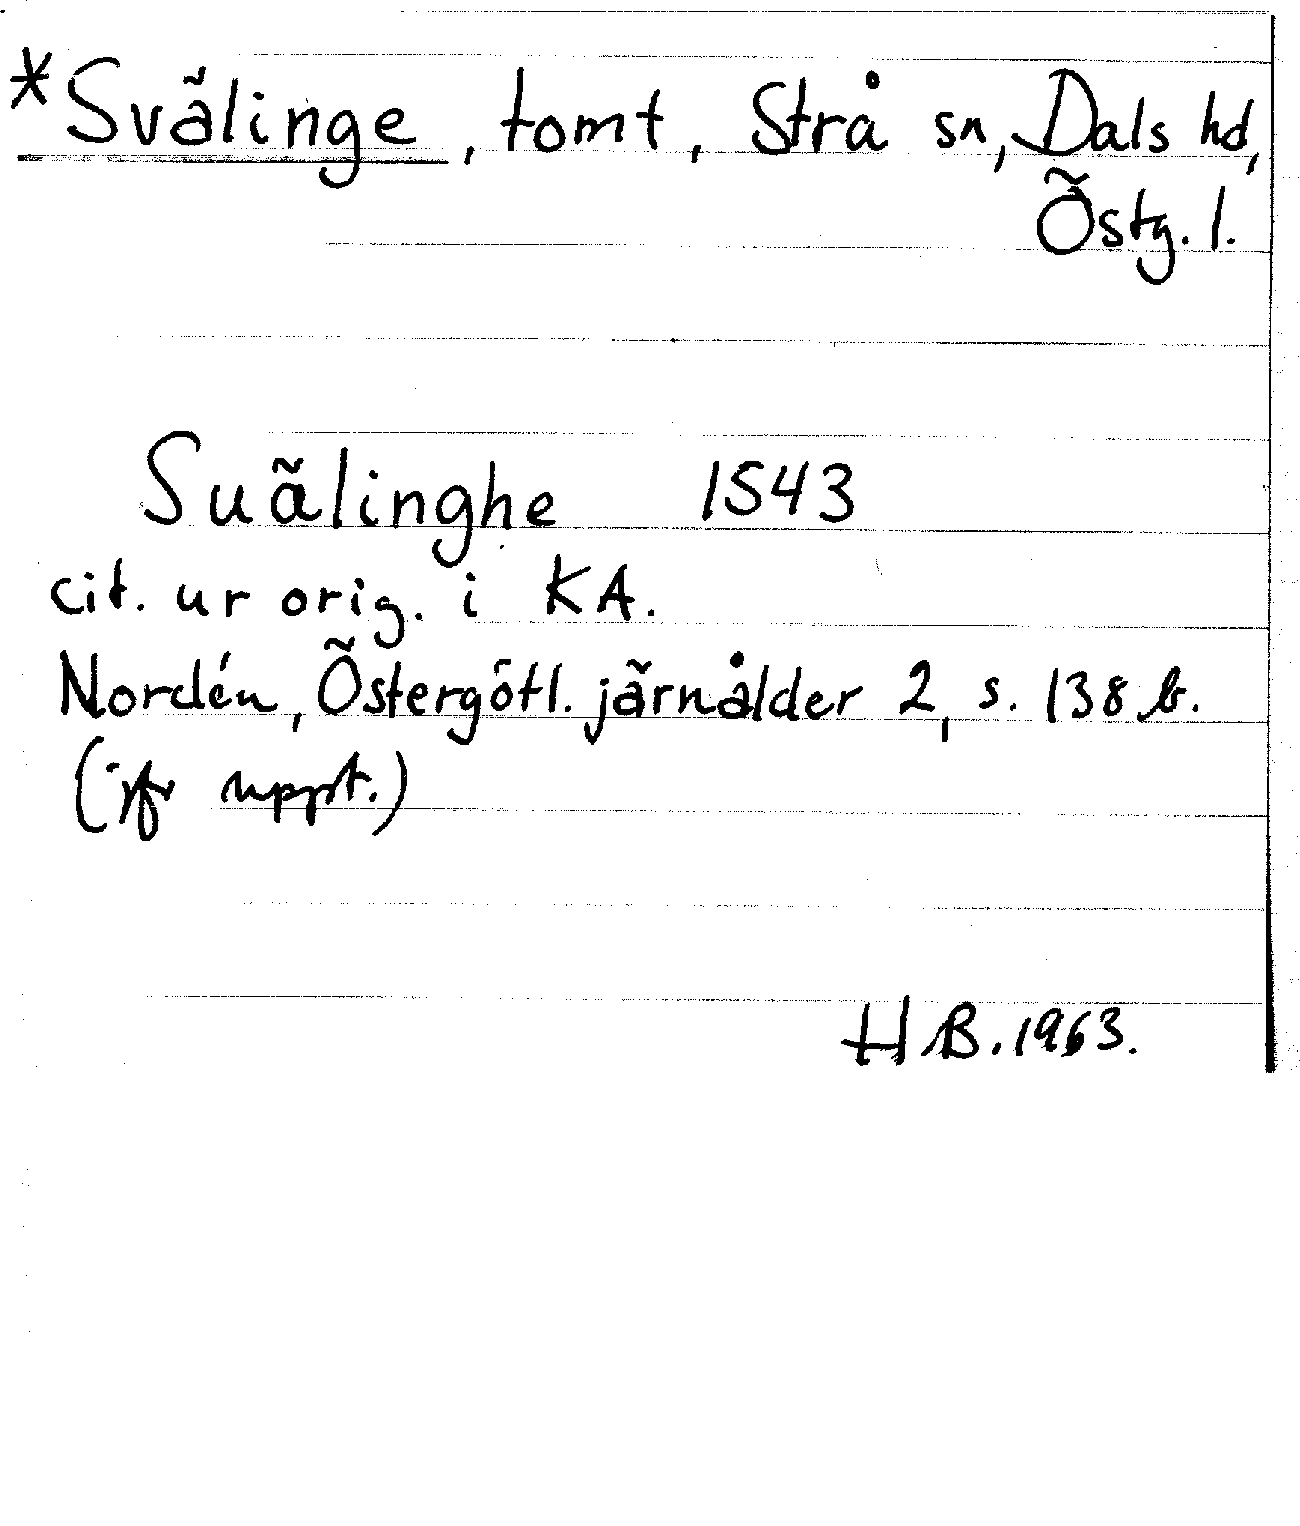 *Svälinge, tomt, Strå sn, Dals hd,
Östg. l.
Suälinghe 1543
cit. ur orig. i KA.
Nordén, Östergötl. järnålder 2, s. 138 b.
(jfr uppt.)
H B. 1963.